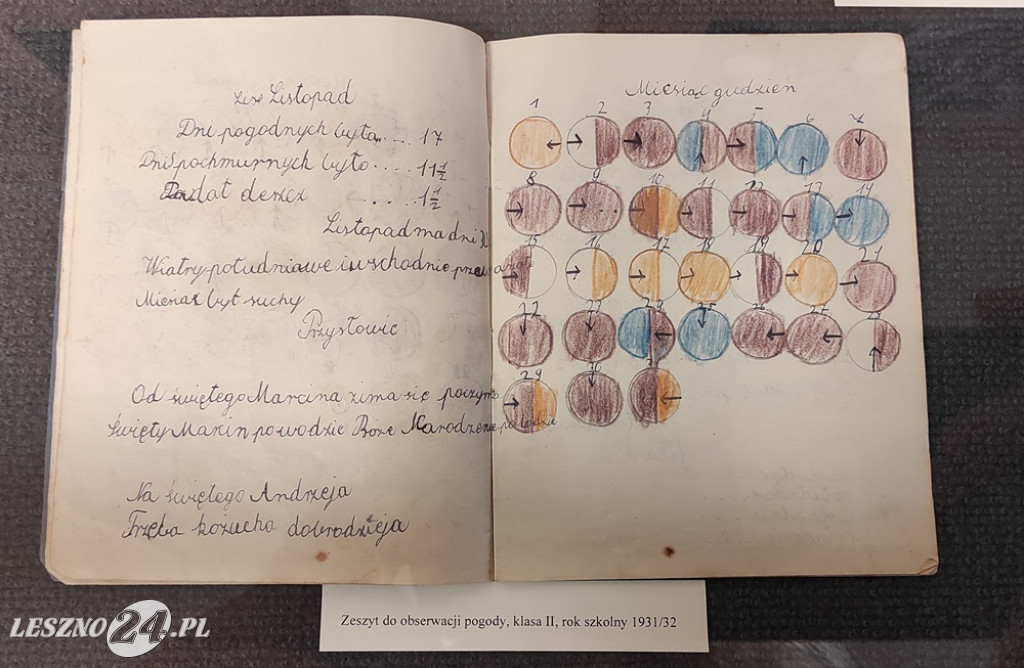 Listopad
Dni pogodnych było..... 17
Dni pochmurnych było..... 11 1/2
Padał deszcz ..... 1 1/2
Listopad ma dni 30
Wiatry południowe i wschodnie przeważały
Miesiąc był suchy
Przysłowie
Od świętego Marcina zima się poczyna
Święty Marcin po wodzie Boże Narodzenie po lodzie
Na świętego Andrzeja
Trzeba kożucha dobrodzieja
Miesiąc grudzień
1 2 3 4 5 6 7
8 9 10 11 12 13 14
15 16 17 18 19 20 21
22 23 24 25 26 27 28
29 30 31
Zeszyt do obserwacji pogody, klasa II, rok szkolny 1931/32
LESZNO24.PL